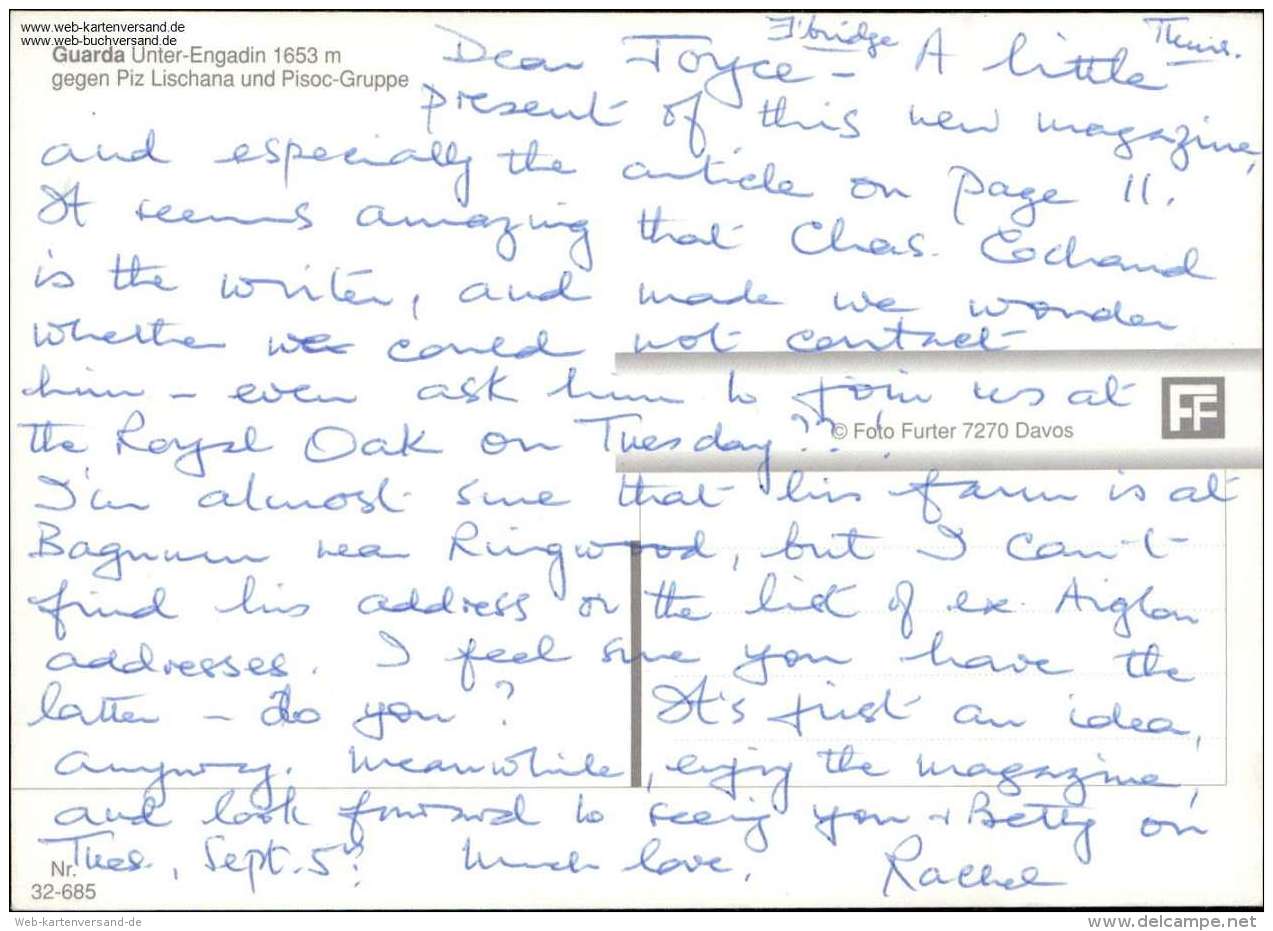 www.web-kartenversand.de
www.web-buchversand.de
Guarda Unter-Engadin 1653 m
gegen Piz Lischana und Pisoc-Gruppe
F'bridge Thurs.
Dear Joyce - A little
present of this new magazine,
and especially the article on page 11.
It seems amazing that Chas. Cochand
is the writer, and made we wonder
whether we could not contact
him - even ask him to join us at
the Royal Oak on Tuesday??!
© Foto Furter 7270 Davos
FF
I'm almost sure that his farm is at
Bagnum near Ringwood, but I can't
find his address or the list of ex. Aiglon
addresses. I feel sure you have the
latter - do you? It's just an idea,
anyway. Meanwhile, enjoy the magazine,
and look forward to seeing you + Betty on
Tues., Sept. 5th? Much love, Rachel
Nr.
32-685
Web-kartenversand-de
delcampe.net